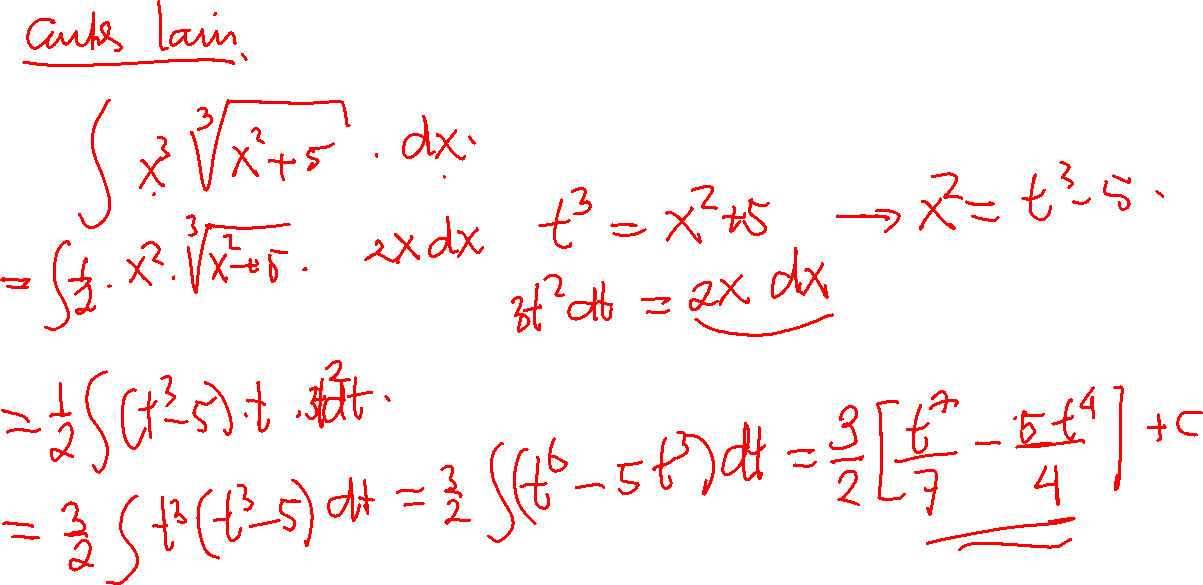 ∫ x³ ∛(x²+5) . dx.
= ∫ 1/2 . x² . ∛(x²+5) . 2x dx
t³ = x²+5 → x² = t³-5.
3t²dt = 2x dx
= 1/2 ∫ (t³-5).t .3t²dt.
= 3/2 ∫ t³(t³-5) dt = 3/2 ∫ (t⁶ - 5t³) dt = 3/2 [t⁷/7 - 5t⁴/4] + C